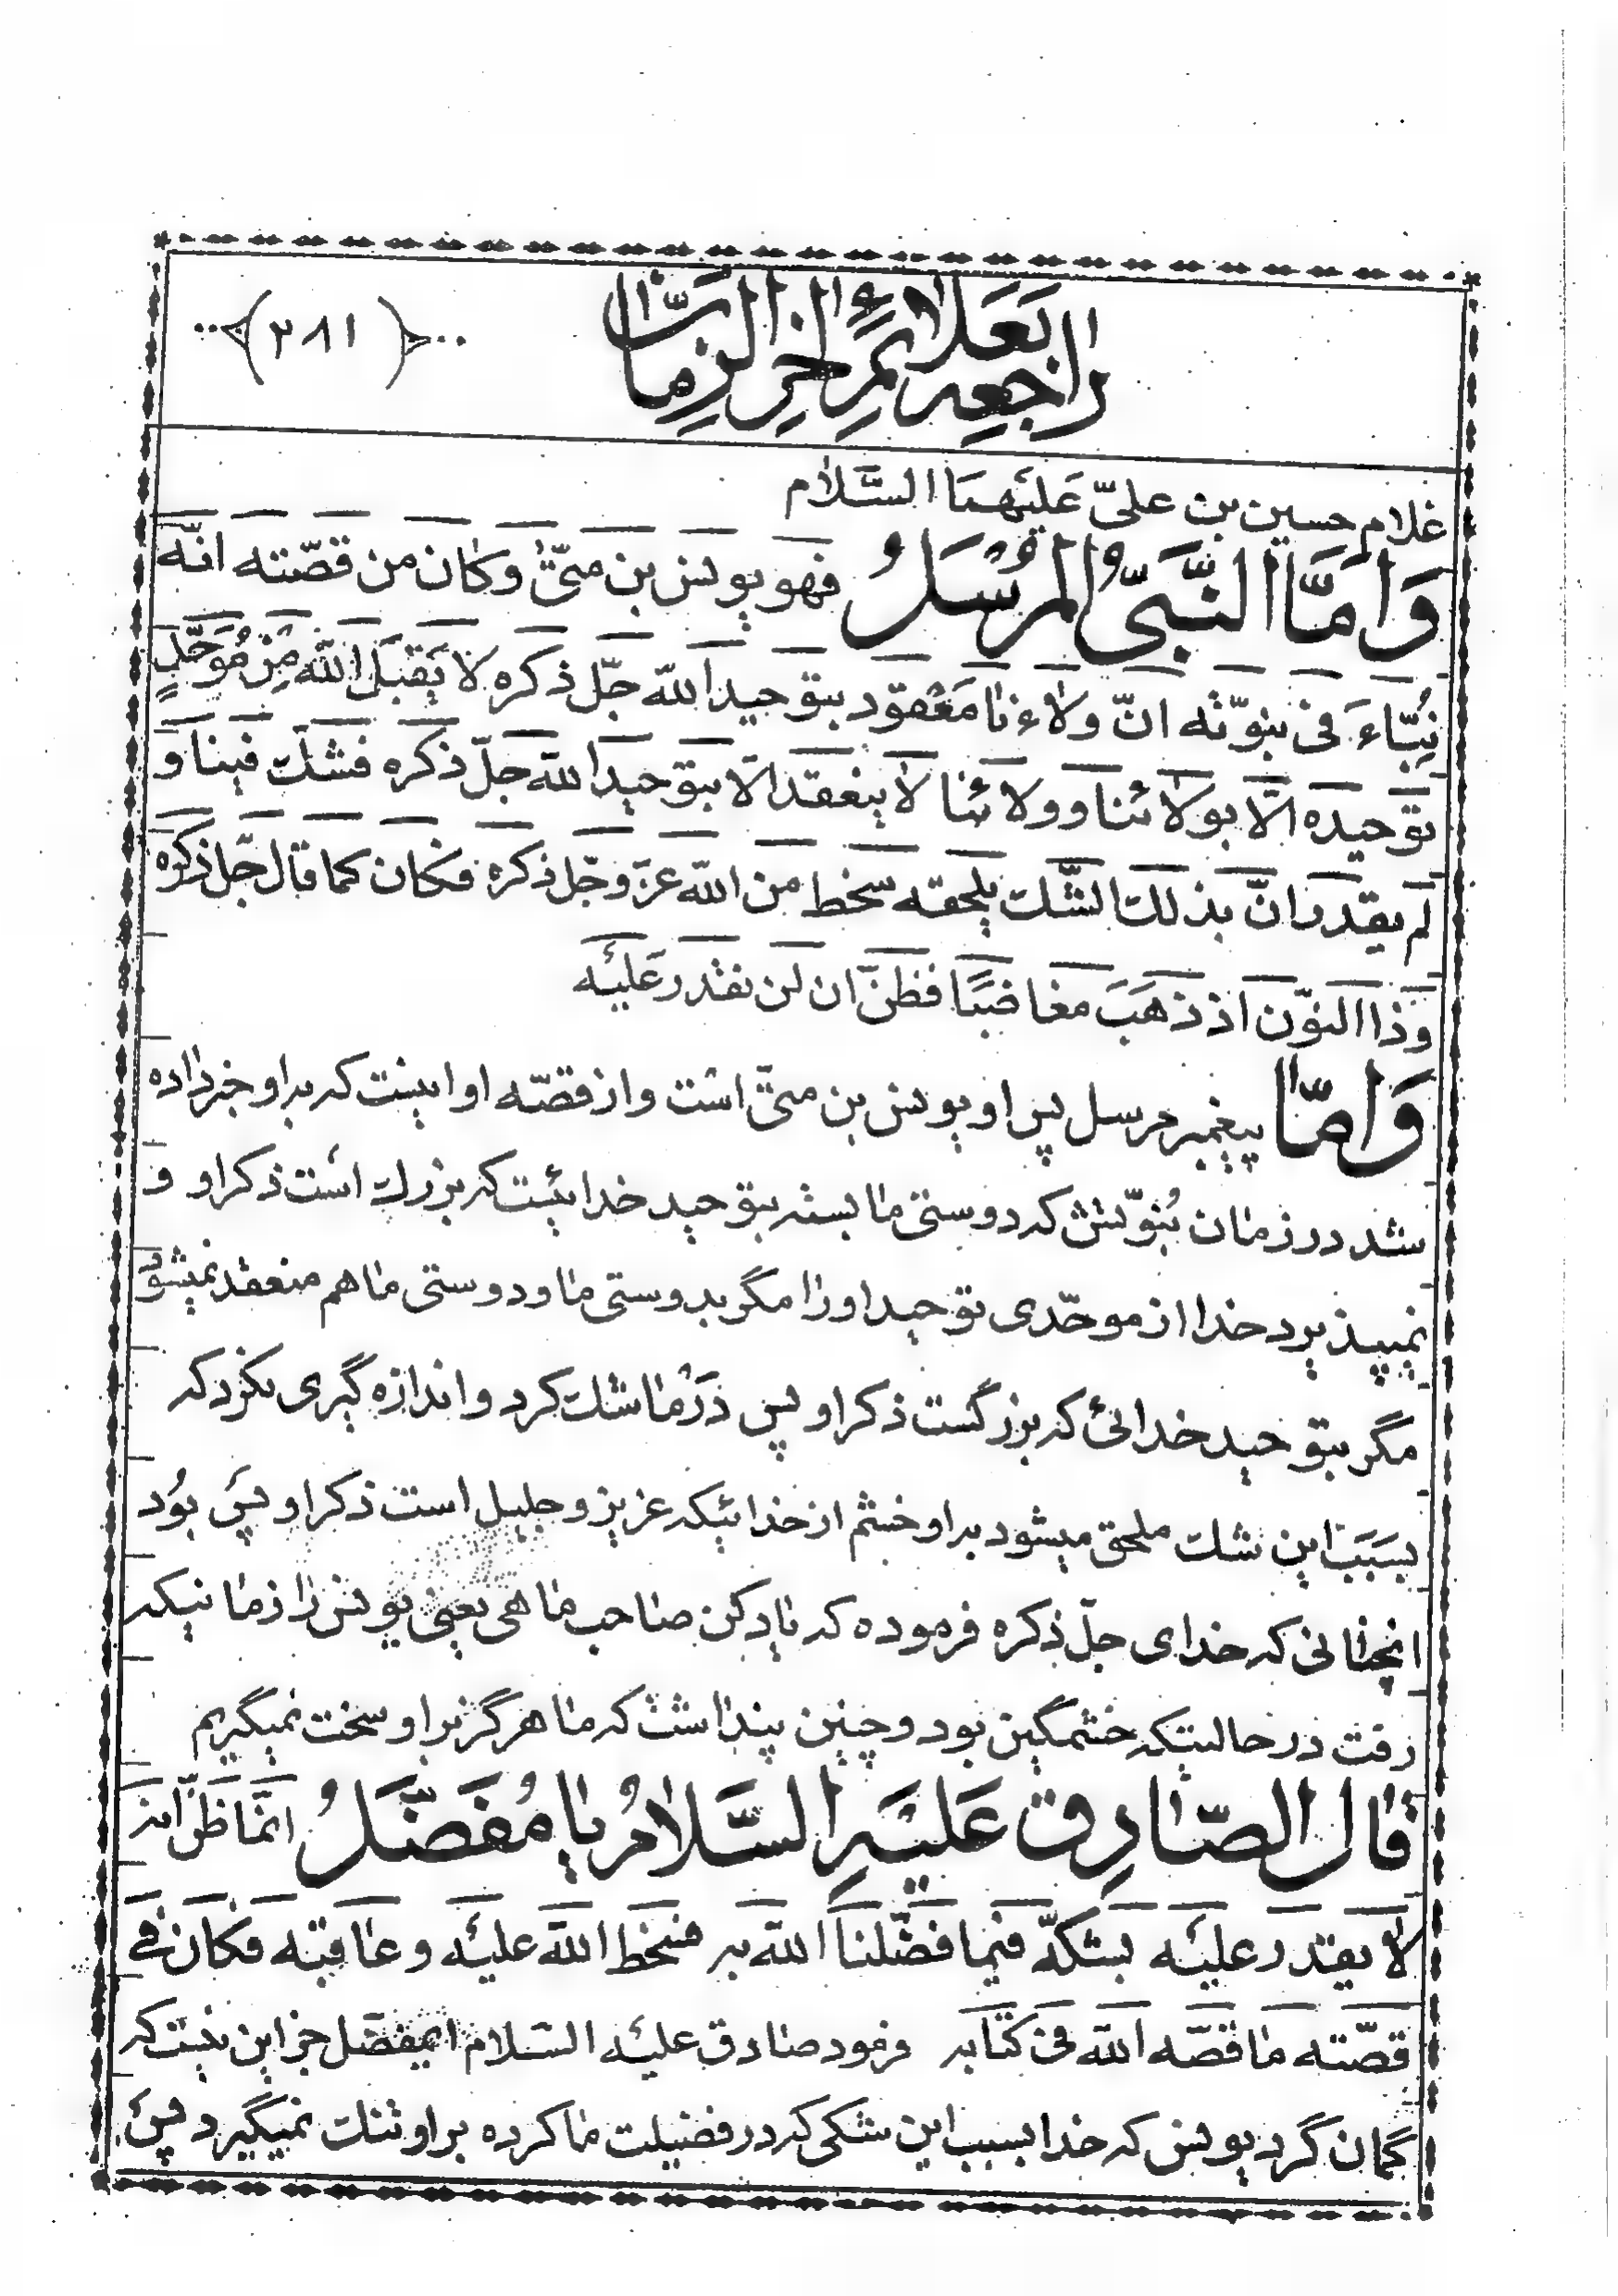 راجعه بعلائم اخر الزمان
(۲۸۱)
غلام حسین بن علیّ عَلیَهمَا السَّلام
وَامَّا النَّبیُّ المُرسَلُ فهو یونس بن متّی وکان من قصّته انّه
نُبّاءَ فی نبوّته انّ ولاءنا مَعْقود بتوحید الله جلّ ذکره لا یَقبَل الله مِنْ مُوَحّدٍ
توحیده الّا بولائنا وولائنا لا ینعقد الّا بتوحید الله جلّ ذکره فشكّ فینا وَ
لم یقدر انّ بذلك الشّك یلحقه سخط من الله عزّ وجّل ذکره فکان کما قال جّل ذکره
وَذا النوّن اذ ذهَبَ مغاضبًا فظنّ ان لن نقدر عَلیَه
وَامّا پیغمبر مرسل پس او یونس بن متیّ است واز قصّه او اینست که براو خبر داده
شد در زمان نُبوّتش که دوستی ما بسته بتوحید خدائیست که بزرك است ذکر او و
نمیپذیرد خدا از موحّدی توحید او را مگر بدوستی ما ودوستی ما هم منعقد نمیشود
مگر بتوحید خدائی که بزرگست ذکر او پس دَرْ ما شك کرد واندازه گیری نکرد که
بسَبَب این شك ملحق میشود براو خشم از خدائیکه عزیز وجلیل است ذکر او پس بوُد
انچنانی که خدای جلّ ذکره فرموده که یاد کن صاحب ماهی یعنی یونس را زمانیکه
رفت در حالتیکه خشمگین بود وچنین پنداشت که ما هرگز براو سخت نمیگیریم
قال الصّادِق عَلیَهِ السَّلامُ یا مُفَضّلُ انّما ظنّ ان
لا یقدر علیَه بشکّه فیما فضّلنا الله به فسخط الله علیَه وعاقبه فکان فی
قصّته ما قصّه الله فی کتابه فرمود صادق علیَه السّلام ایمفضّل جز این نیست که
گمان کرد یونس که خدا بسبب این شکی که در فضیلت ما کرده براو تنك نمیگیرد پس